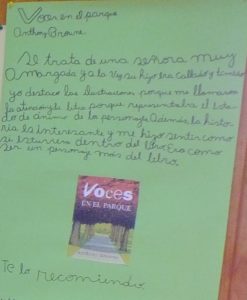 Voces en el parque
Anthony Browne.
Se trata de una señora muy
amargada y a la vez su hijo era callado y
yo destaco las ilustraciones porque me llamaron
la atención y el libro porque representaba el esta
do de ánimo de los personajes Además, la histo
ria es interesante y me hizo sentir como
si estuviera dentro del libro Era como
ser un personaje más del libro.
Voces
EN EL PARQUE
Te lo recomiendo.